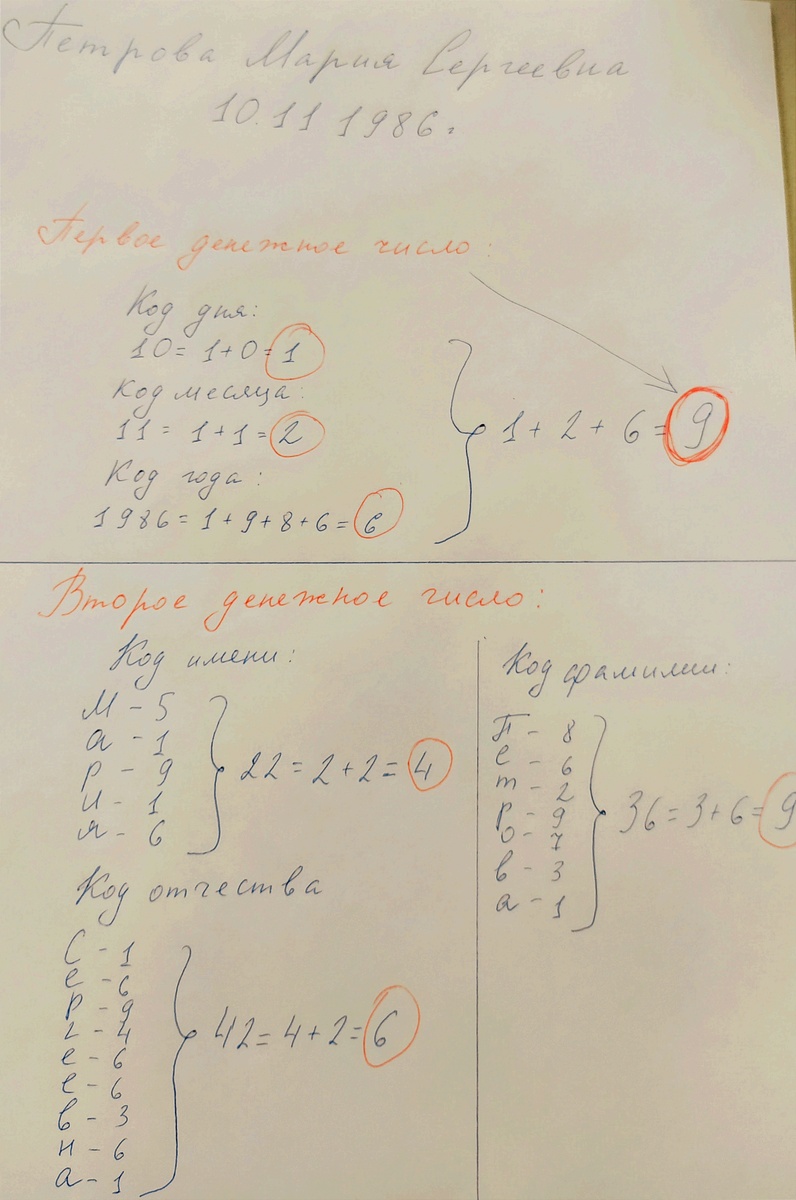 Петрова Мария Сергеевна
10.11 1986г
Первое денежное число:
Код дня:
10 = 1+0 = 1
Код месяца:
11 = 1+1 = 2
Код года:
1986 = 1+9+8+6 = 6
1 + 2 + 6 = 9
Второе денежное число:
Код имени:
М - 5
а - 1
р - 9
и - 1
я - 6
22 = 2+2 = 4
Код отчества
С - 1
е - 6
р - 9
г - 4
е - 6
е - 6
в - 3
н - 6
а - 1
42 = 4+2 = 6
Код фамилии:
П - 8
е - 6
т - 2
р - 9
о - 7
в - 3
а - 1
36 = 3+6 = 9